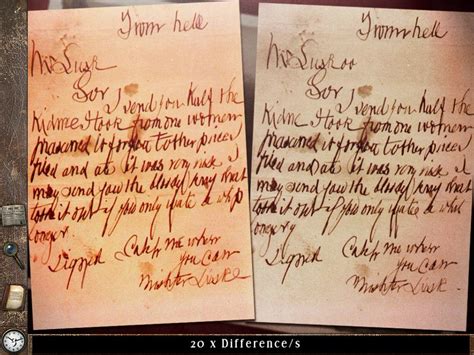 From hell
Mr Lusk
Sor
I send you half the
Kidne I took from one women
prasarved it for you tother piece
fried and ate it was very nise I
may send you the bloody knif that
took it out if you only wate a whil
longer
signed Catch me when
you can
Mishter Lusk
From hell
Mr Lusk oo
Sor
I send you half the
Kidne I took from one women
prasarved it for you tother piece
fried and ate it was very nise I
may send you the bloody knif that
took it out if you only wate a whil
longery
signed Catch me when
you can
Mishter Lusk
20 x Difference/s